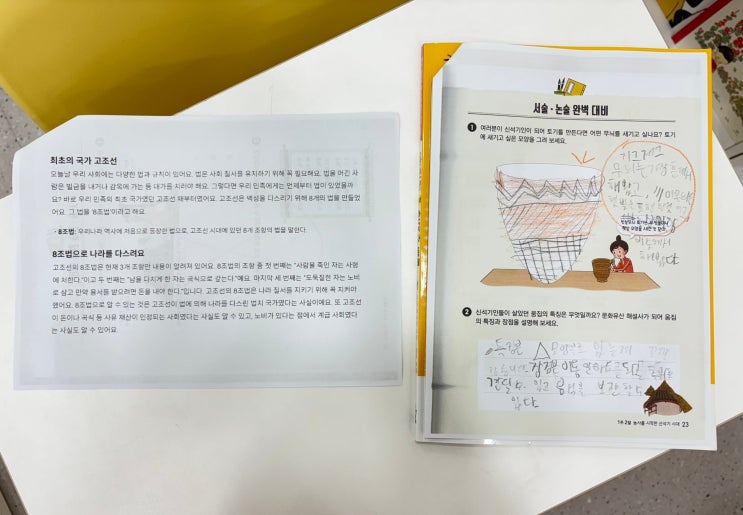 최초의 국가 고조선
오늘날 우리 사회에는 다양한 법과 규칙이 있어요. 법은 사회 질서를 유지하기 위해 꼭 필요해요. 법을 어긴 사
람은 벌금을 내거나 감옥에 가는 등 대가를 치러야 해요. 그렇다면 우리 민족에게는 언제부터 법이 있었을까
요? 바로 우리 민족의 최초 국가였던 고조선 때부터였어요. 고조선은 백성을 다스리기 위해 8개의 법을 만들었
어요. 그 법을 '8조법'이라고 해요.
· 8조법: 우리나라 역사에 처음으로 등장한 법으로, 고조선 시대에 있던 8개 조항의 법을 말한다.
8조법으로 나라를 다스려요
고조선의 8조법은 현재 3개 조항만 내용이 알려져 있어요. 8조법의 조항 중 첫 번째는 "사람을 죽인 자는 사형
에 처한다."이고 두 번째는 "남을 다치게 한 자는 곡식으로 갚는다."예요. 마지막 세 번째는 "도둑질한 자는 노비
로 삼고 만약 용서를 받으려면 돈을 내야 한다."입니다. 고조선의 8조법은 나라 질서를 지키기 위해 꼭 지켜야
했어요. 8조법으로 알 수 있는 것은 고조선이 법에 의해 나라를 다스린 법치 국가였다는 사실이에요. 또 고조선
이 돈이나 곡식 등 사유 재산이 인정되는 사회였다는 사실도 알 수 있고, 노비가 있다는 점에서 계급 사회였다
는 사실도 알 수 있어요.
서술·논술 완벽 대비
1 여러분이 신석기인이 되어 토기를 만든다면 어떤 무늬를 새기고 싶나요? 토기
에 새기고 싶은 모양을 그려 보세요.
지그재그
무늬는
해랑
2 신석기인들이 살았던 움집의 특징은 무엇일까요? 문화유산 해설사가 되어 움집
의 특징과 장점을 설명해 보세요.
특징은 △ 모양으로
장점은
견딜 수 있고 음식을 보관할 수
있다
1권 2장 농사를 시작한 신석기 시대 23